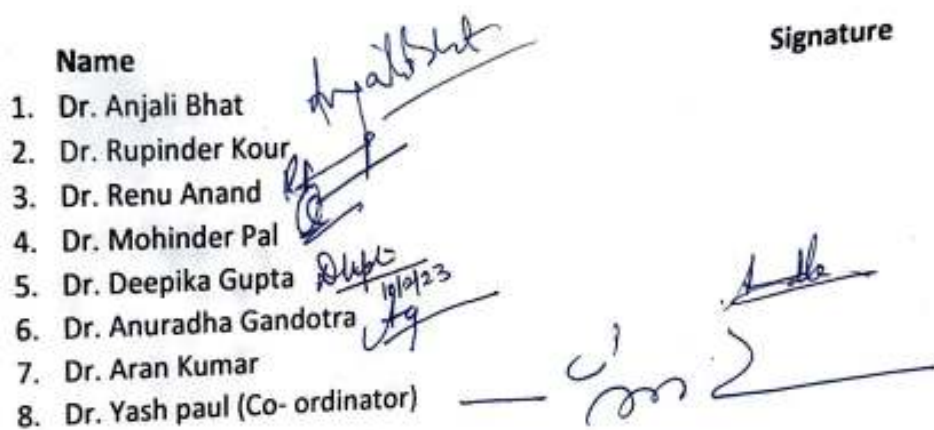 Name Signature
1. Dr. Anjali Bhat Anjali Bhat
2. Dr. Rupinder Kour
3. Dr. Renu Anand
4. Dr. Mohinder Pal
5. Dr. Deepika Gupta
6. Dr. Anuradha Gandotra
7. Dr. Aran Kumar
8. Dr. Yash paul (Co- ordinator)